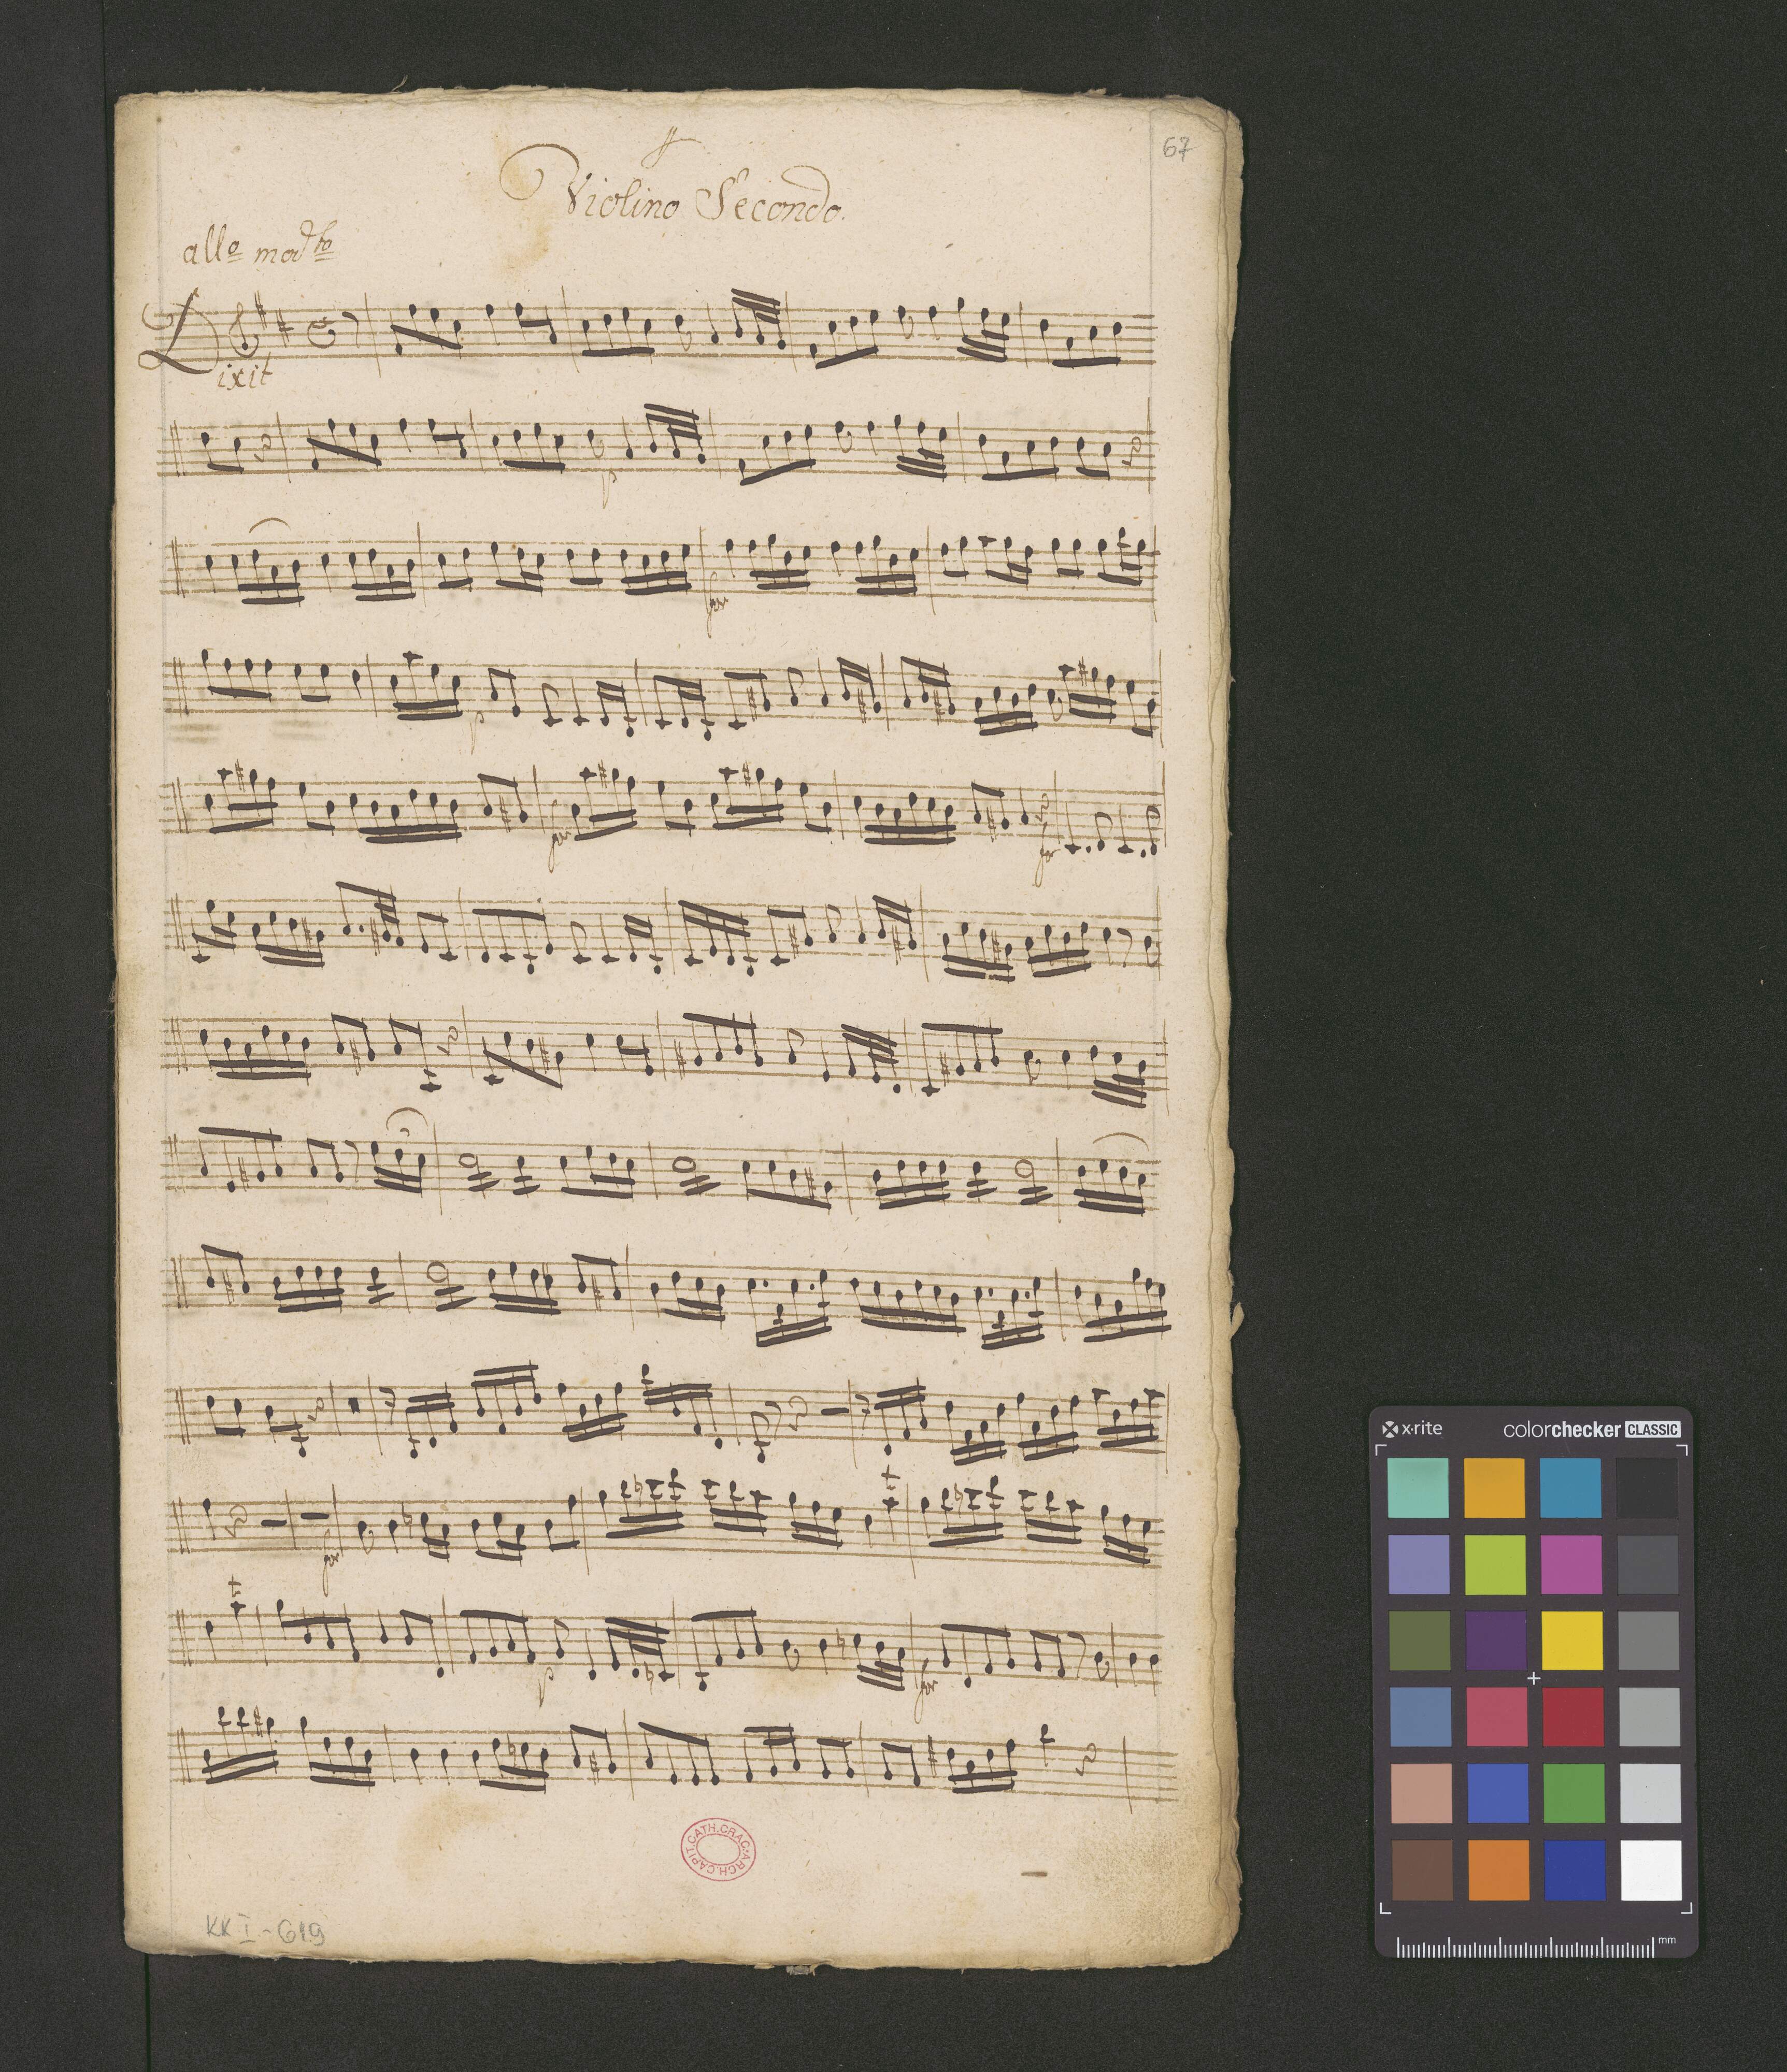 67
Violino Secondo.
allo modto
Dixit
p
for
p
for
for
for
p
for
ARCH.CAPIT.CATH.CRAC.
KK I-619
x·rite colorchecker CLASSIC
mm